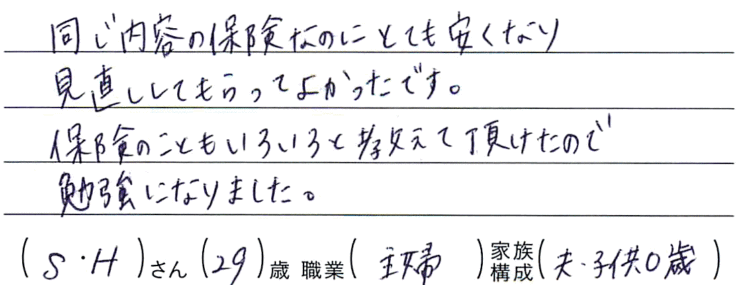 同じ内容の保険なのにとても安くなり
見直ししてもらってよかったです。
保険のこともいろいろと教えて頂けたので
勉強になりました。
(S・H)さん(29)歳 職業(主婦)家族構成(夫・子供0歳)